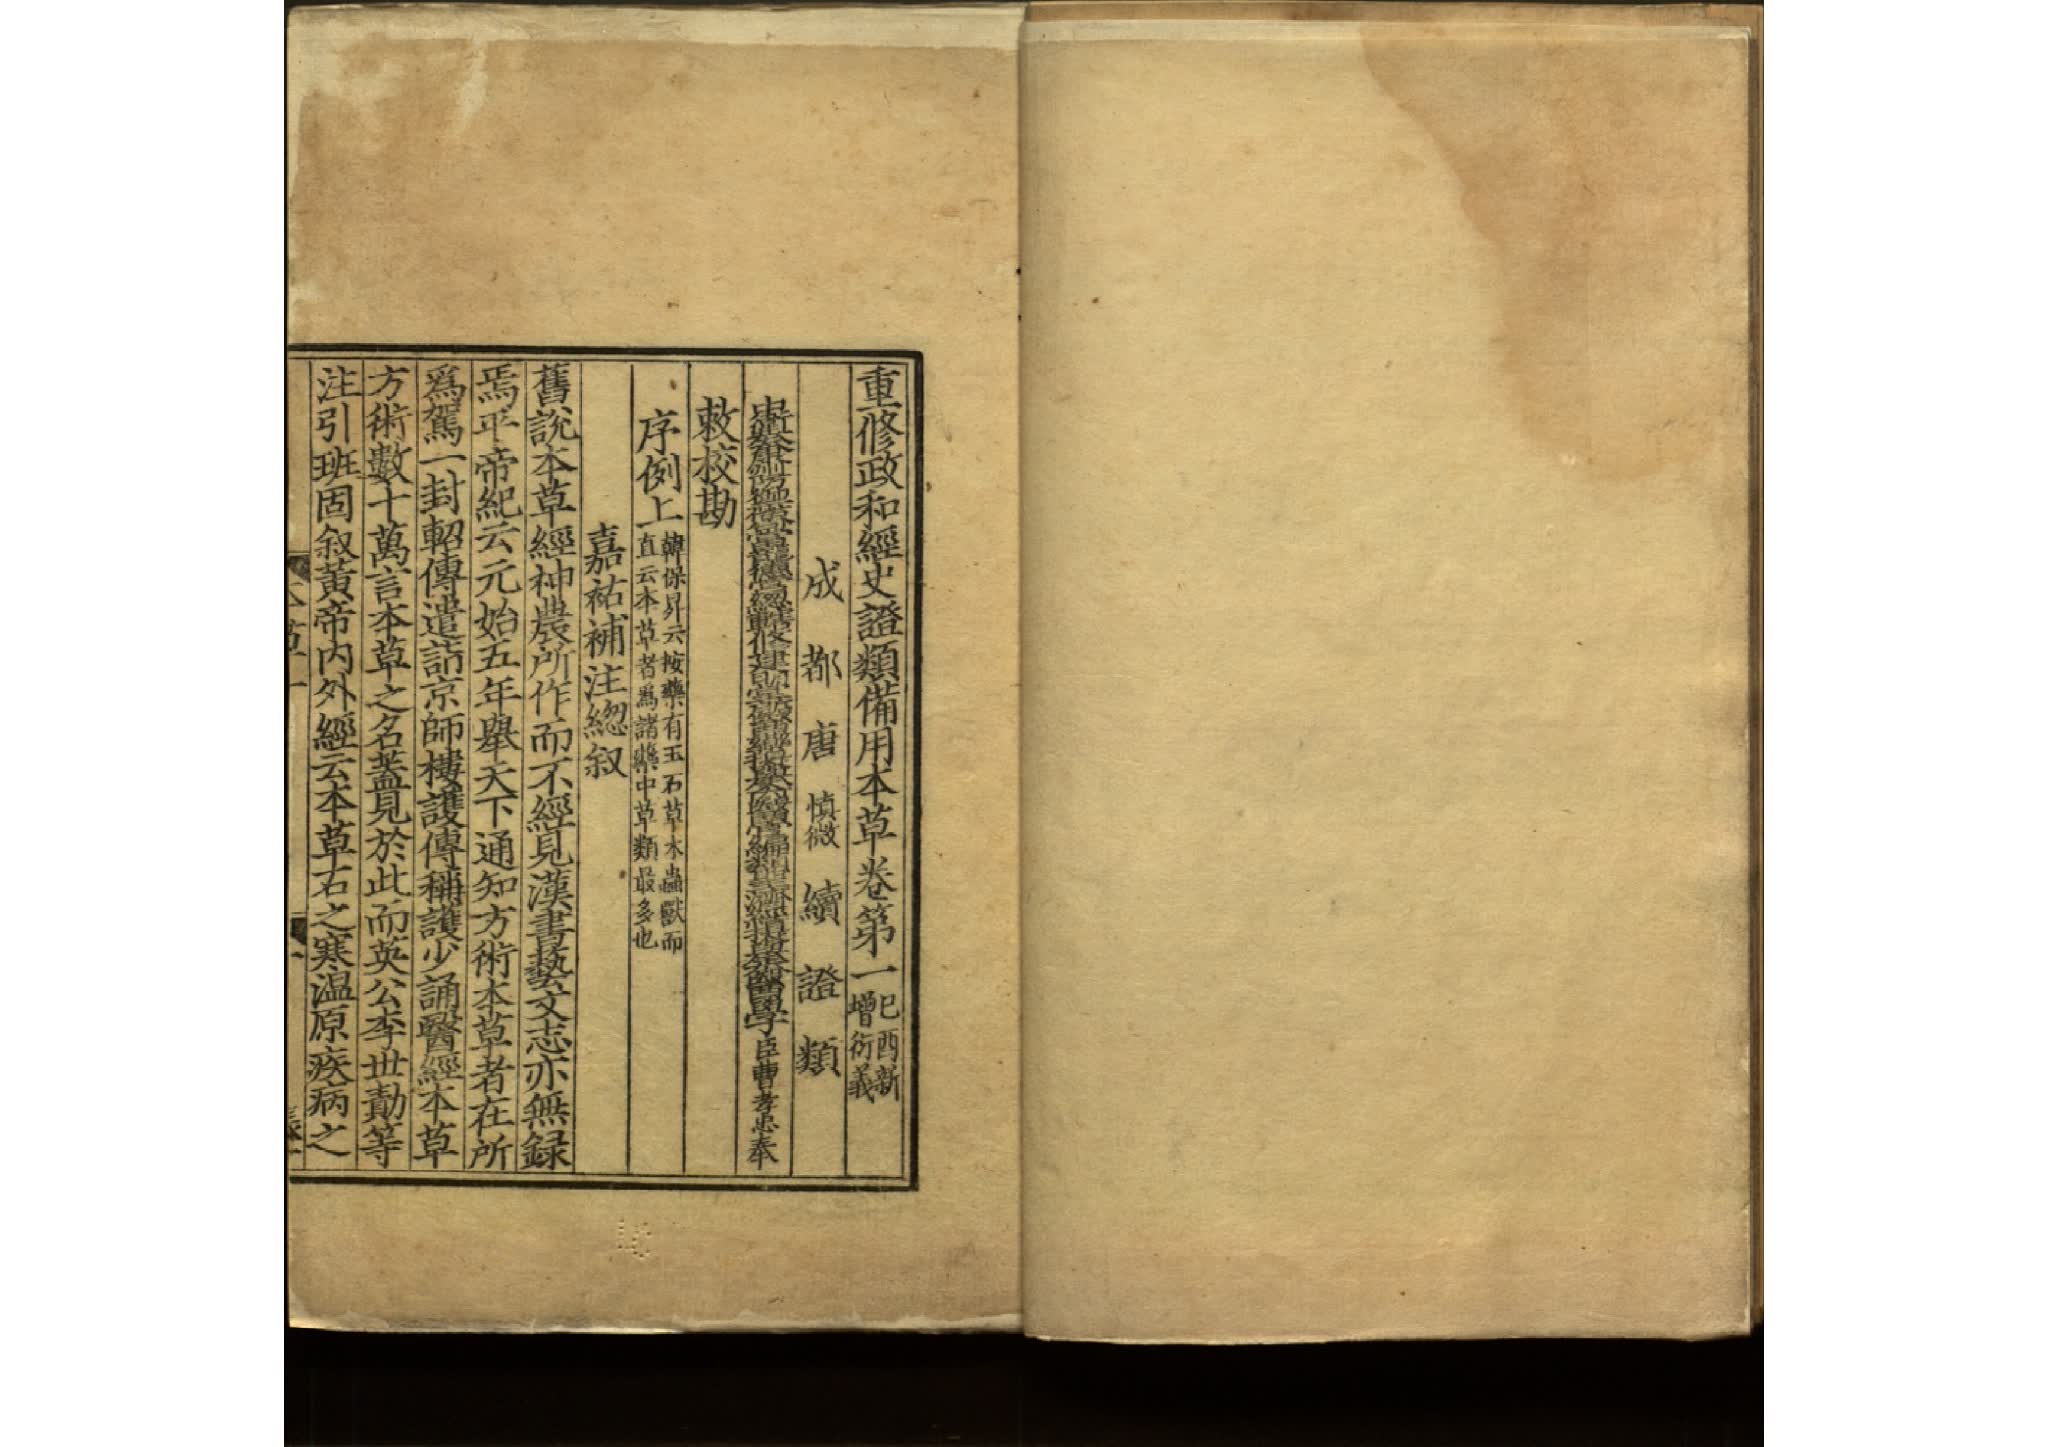 重修政和經史證類備用本草卷第一
己酉新
增衍義
成都唐慎微續證類
康州防禦使句當龍德宮總轄修建明堂所醫藥提舉入內醫官編類聖濟經提舉太醫學臣曹孝忠奉
敕校勘
序例上
韓保昇云按藥有玉石草木蟲獸而
直云本草者爲諸藥中草類最多也
嘉祐補注緫叙
舊說本草經神農所作而不經見漢書藝文志亦無録
焉平帝紀云元始五年舉天下通知方術本草者在所
爲駕一封軺傳遣詣京師樓護傳稱護少誦醫經本草
方術數十萬言本草之名蓋見於此而英公李世勣等
注引班固叙黃帝內外經云本草石之寒温原疾病之